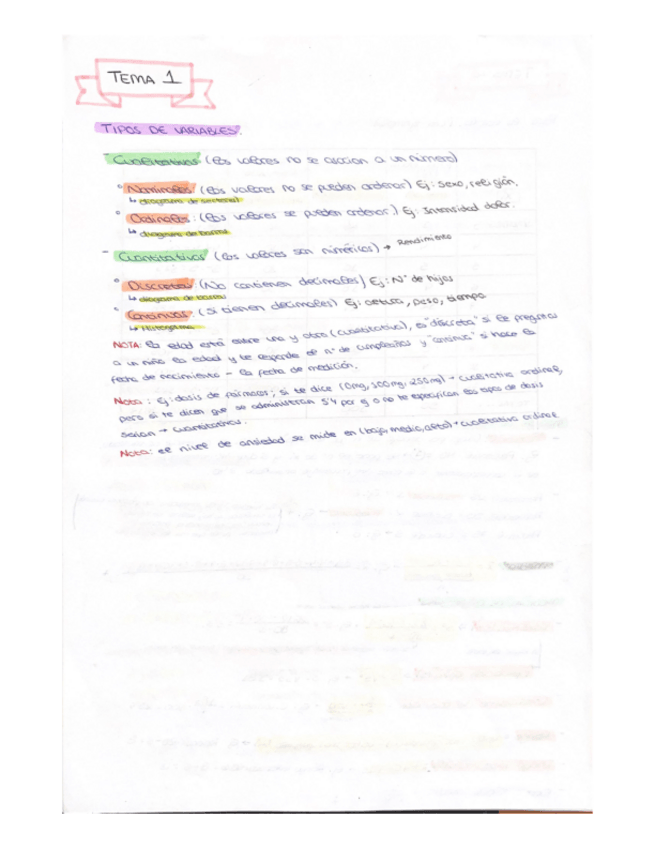 TEMA 1
TIPOS DE VARIABLES.
- Cualitativas (los valores no se asocian a un número)
° Nominales (los valores no se pueden ordenar) Ej: sexo, religión.
↳ diagrama de sectores
° Ordinales: (los valores se pueden ordenar) Ej: Intensidad dolor.
↳ diagrama de barras
- Cuantitativas (los valores son numéricos) → Rendimiento
° Discretas: (No contienen decimales) Ej: Nº de hijos
↳ diagrama de barras
° Continuas: (si tienen decimales) Ej: altura, peso, tiempo
↳ Histograma
NOTA: la edad está entre una y otra (cuantitativa), es "discreta" si le preguntas
a un niño la edad y te responde el nº de cumpleaños y "continua" si hace la
fecha de nacimiento - la fecha de medición.
Nota: Ej: dosis de fármacos; si te dice (0mg, 100mg, 250mg) → cualitativa ordinal,
pero si te dicen que se administran 5'4 por g o no te especifican los tipos de dosis
serían → cuantitativas.
Nota: el nivel de ansiedad se mide en (bajo, medio, alto) → cualitativa ordinal